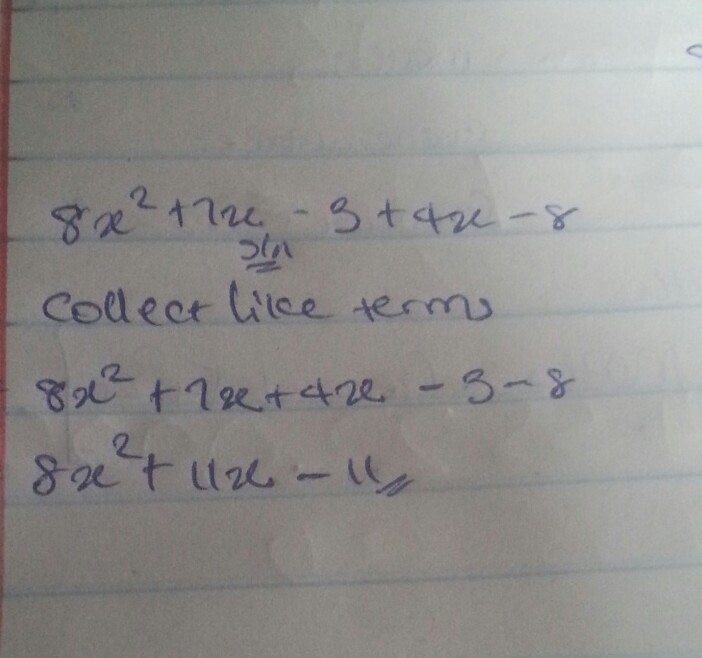 8x² + 7x - 3 + 4x - 8
Sln
Collect like terms
8x² + 7x + 4x - 3 - 8
8x² + 11x - 11